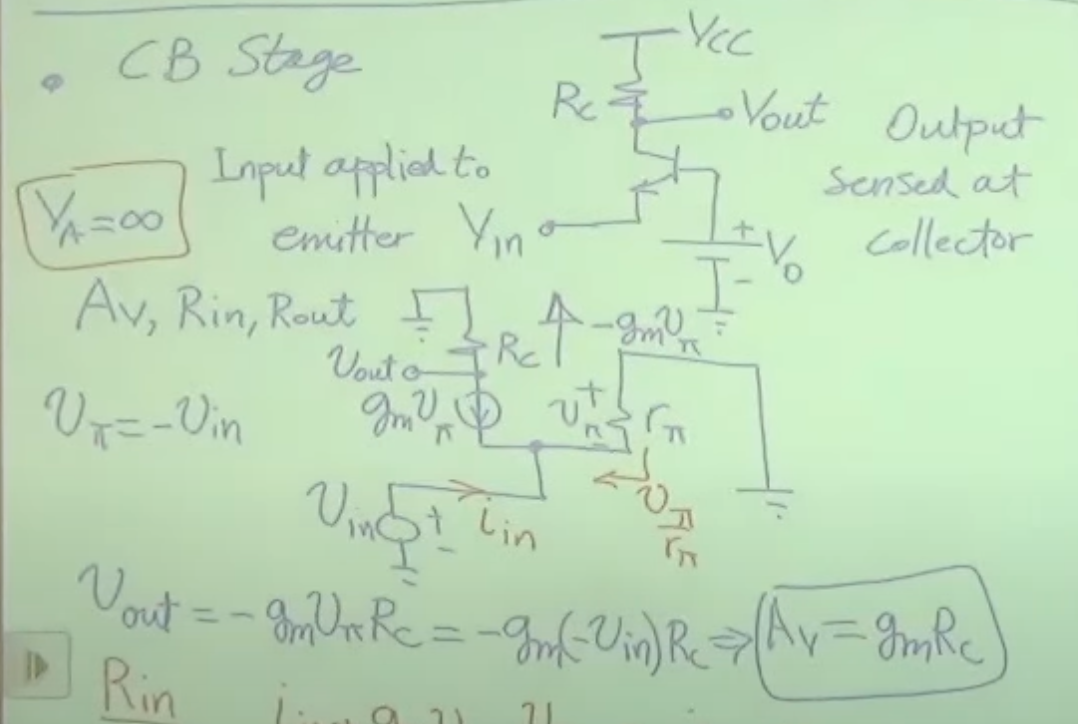 • CB Stage
VCC
RC
Vout
Output
sensed at
collector
Input applied to
emitter
VA = ∞
Vin
+
V0
-
Av, Rin, Rout
RC
-gmvπ
vout
gmvπ
vπ
+
-
rπ
vπ = -vin
vin
+
-
iin
vπ
rπ
vout = -gmvπRC = -gm(-vin)RC ⇒ Av = gmRC
Rin